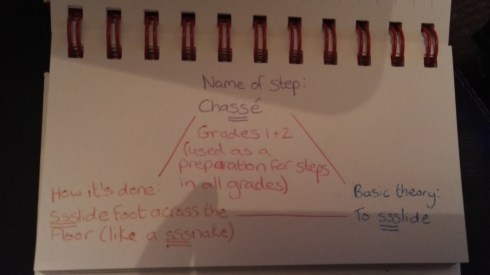 Name of step:
Chassé
Grades 1+2
(used as a
preparation for steps
in all grades)
How it's done:
ssslide foot across the
floor (like a sssnake)
Basic theory:
To ssslide